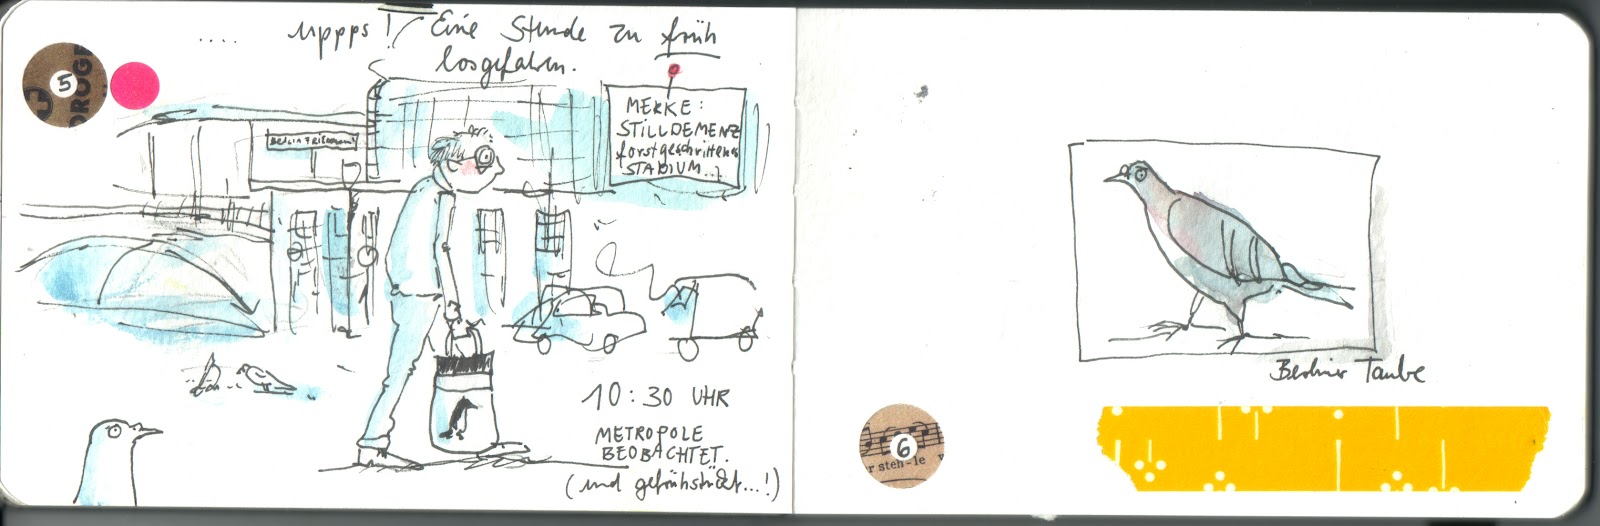 .... uppps! Eine Stunde zu früh
losgefahren.
5
DROGE
BERLIN FRIEDRICHST
MERKE:
STILLDEMENZ
forstgeschrittenes
STADIUM...
10:30 UHR
METROPOLE
BEOBACHTET.
(und gefrühstückt...!)
Berliner Taube
6
r steh-le v